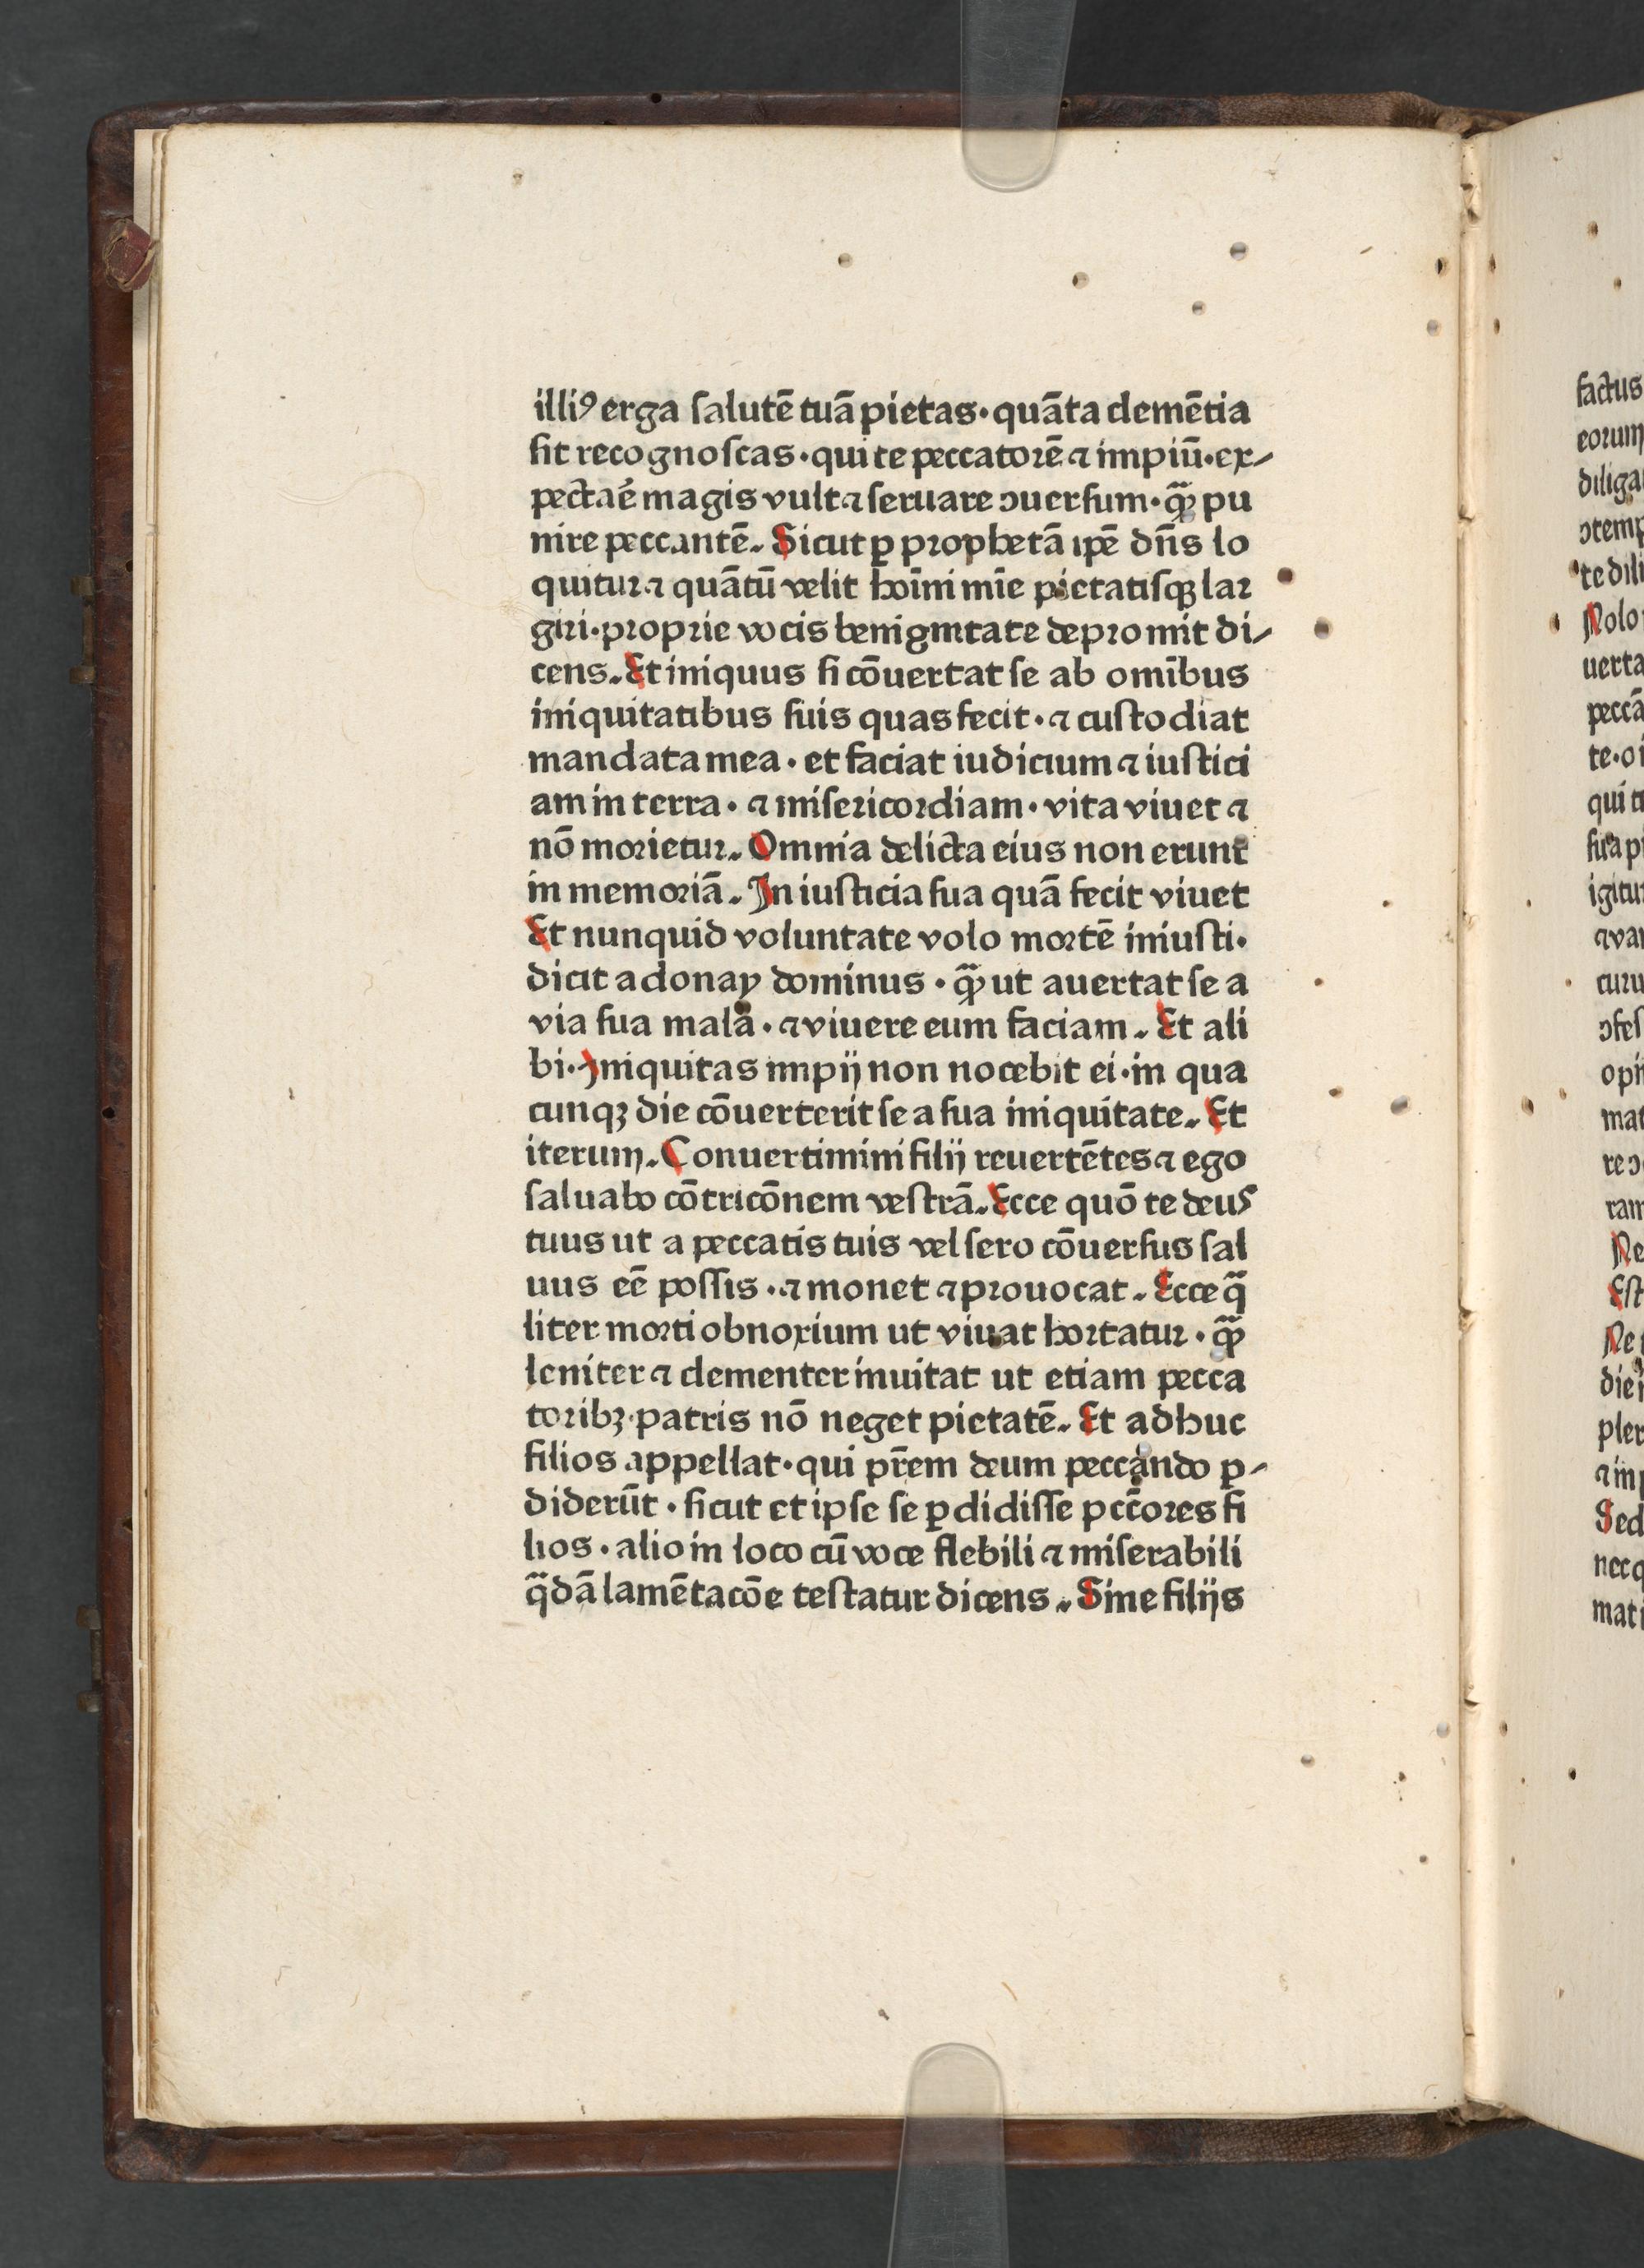 illiꝰ erga ſalutē tuā pietas · quāta clemētia
ſit recognoſcas · qui te peccatorē ⁊ impiū · ex⸗
pectaē magis vult ⁊ ſeruare ↄuerſum · q̄ꝫ pu
nire peccantē. Sicut ꝑ prophetā ip̄e dn̄s lo
quitur ⁊ quātū velit hoīni mīe pietatiſqꝫ lar
giri · proprie vocis benignitate depromit di⸗
cens. Et iniquus ſi cōuertat ſe ab omībus
iniquitatibus ſuis quas fecit · ⁊ cuſtodiat
mandata mea · et faciat iudicium ⁊ iuſtici
am in terra · ⁊ miſericordiam · vita viuet ⁊
nō morietur. Omnia delicta eius non erunt
in memoriā. In iuſticia ſua quā fecit viuet
Et nunquid voluntate volo mortē iniuſti ·
dicit adonay dominus · q̄ꝫ ut auertat ſe a
via ſua mala · ⁊ viuere eum faciam. Et ali
bi · Iniquitas impij non nocebit ei · in qua
cunqꝫ die cōuerterit ſe a ſua iniquitate. Et
iterum. Conuertimini filij reuertētes ⁊ ego
ſaluabo cōtricōnem veſtrā. Ecce quō te deus
tuus ut a peccatis tuis vel ſero cōuerſus ſal
uus eē poſſis · ⁊ monet ⁊ prouocat. Ecce q̄
liter morti obnoxium ut viuat hortatur · q̄ꝫ
leniter ⁊ clementer inuitat ut etiam pecca
toribꝫ · patris nō neget pietatē. Et adhuc
filios appellat · qui pr̄em deum peccando ꝑ⸗
diderūt · ſicut et ipſe ſe ꝑdidiſſe pcc̄ores fi
lios · alio in loco cū voce flebili ⁊ miſerabili
q̄dā lamētacōe teſtatur dicens. Sine filijs
factus
eorum
te dili